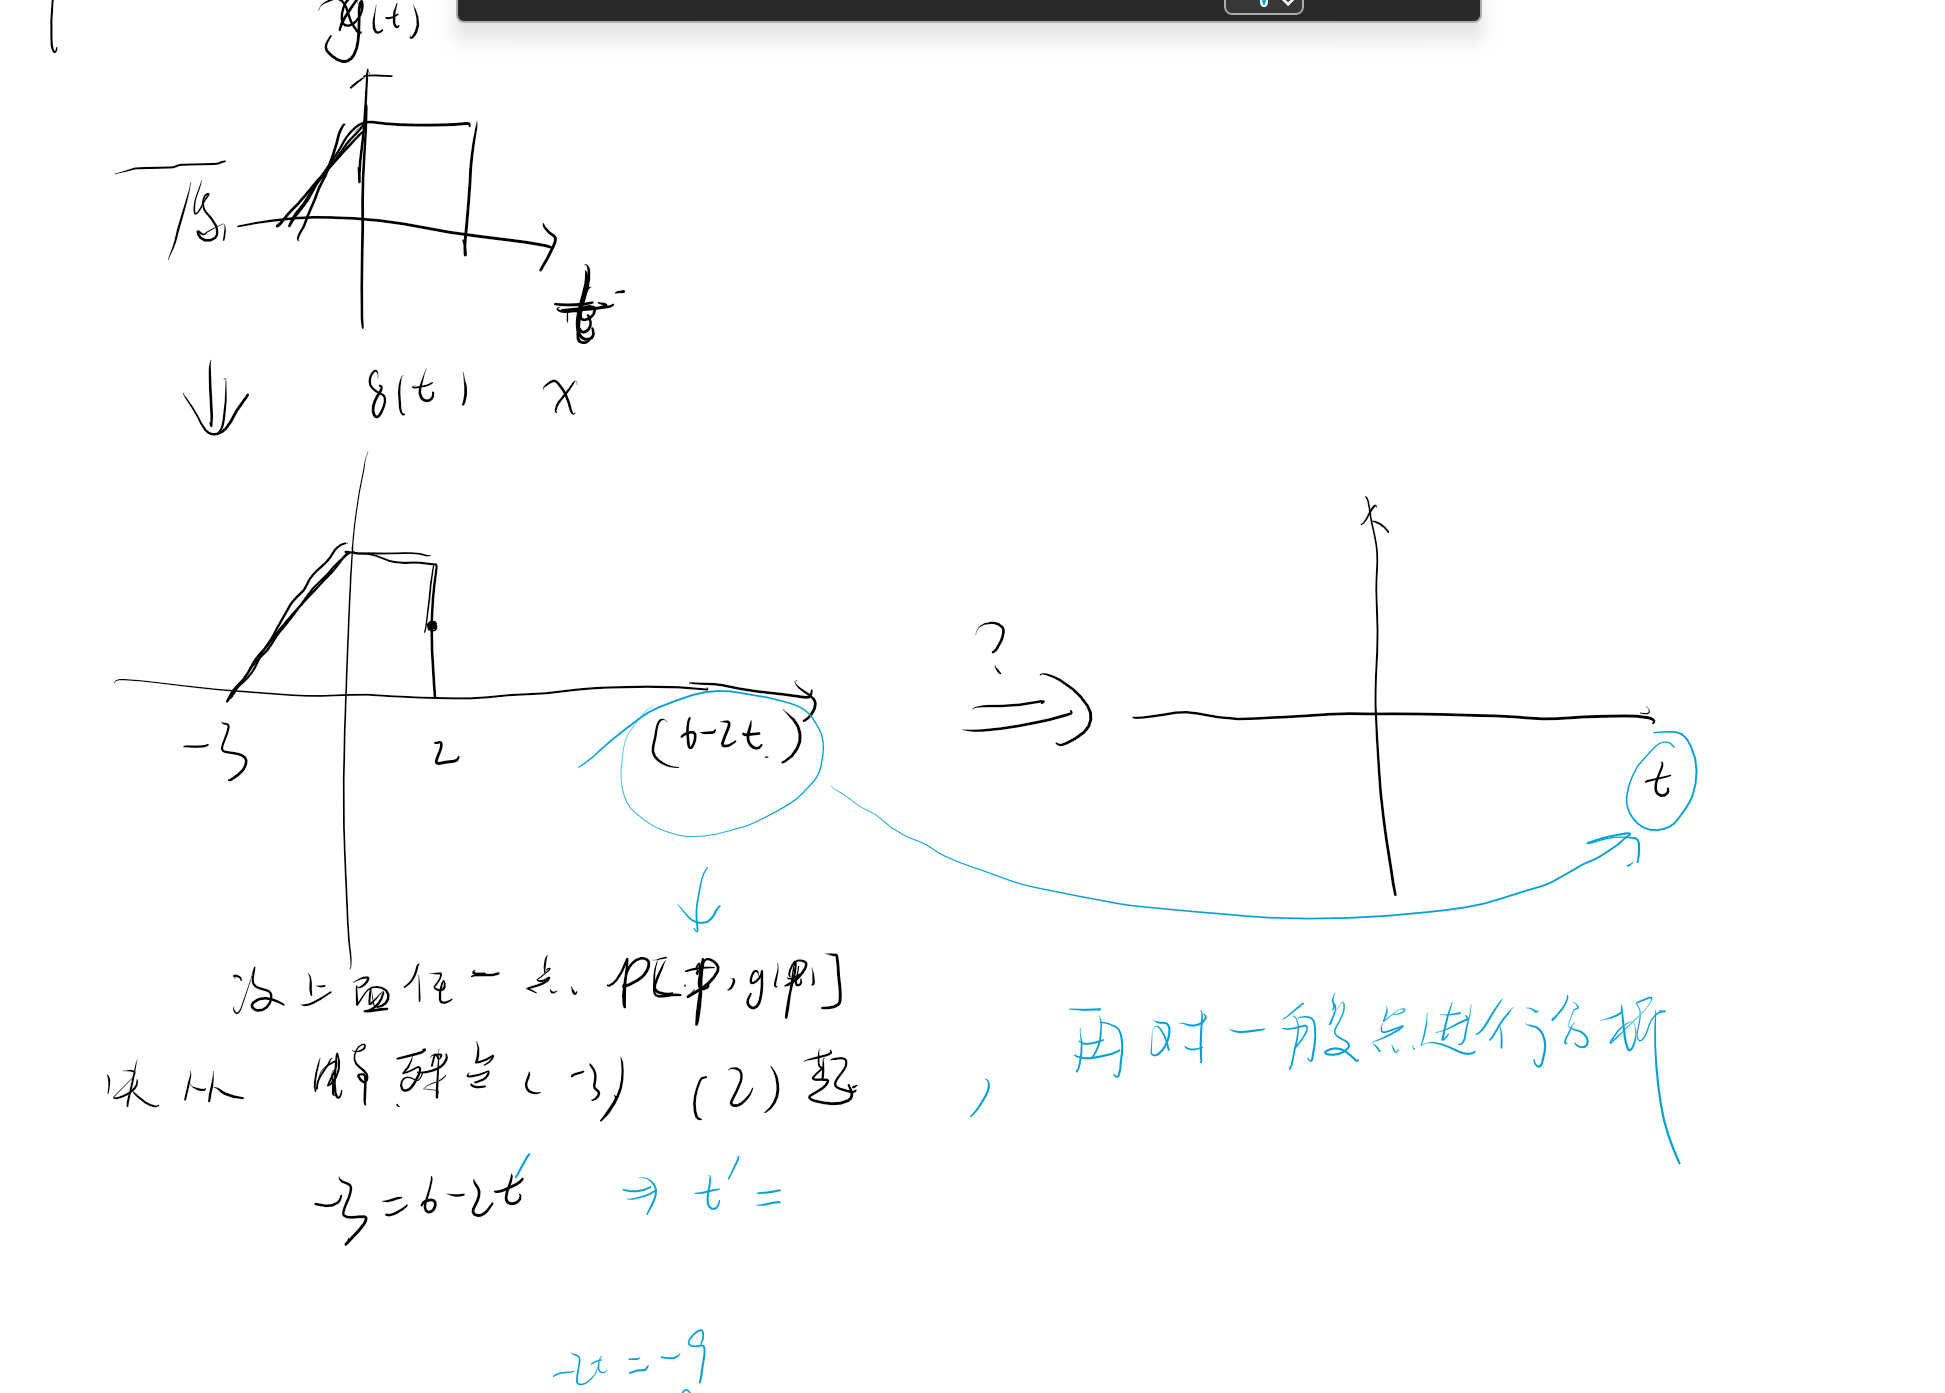 y(t)
g(t) x
-3 2 (6-2t) ? t
设上面任一点 P[p, g(p)]
先从 特殊点 (-3) (2) 起 , 再对一般点进行分析
-3=6-2t' ⇒ t' =
-2t = -9